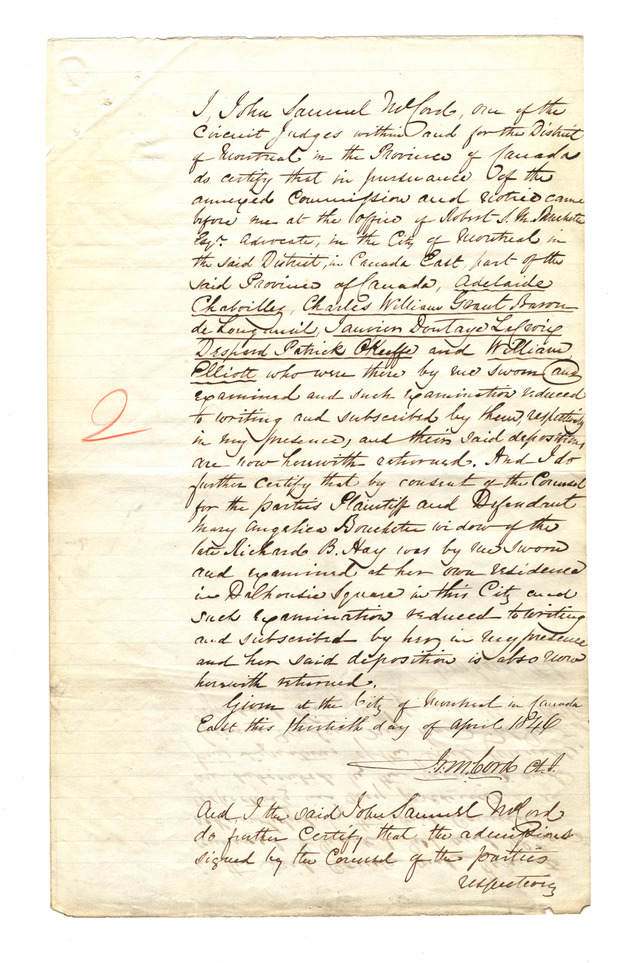 I, John Samuel McCord, one of the
Circuit Judges within and for the District
of Montreal in the Province of Canada
do certify that in pursuance of the
annexed Commission and notice came
before me at the office of Robert S. M. Bouchette
Esqr. Advocate, in the City of Montreal in
the said District, in Canada East, part of the
said Province of Canada, Adelaide
Chaboillez, Charles William Grant Baron
de Longueuil, Janvier
Patrick O'Keeffe and William
Elliott who were there by me sworn and
examined and such examination reduced
to writing and subscribed by them respectively
in my presence, and their said depositions
are now herewith returned. And I do
further certify that by consent of the Counsel
for the parties Plaintiff and Defendant
Mary Angelica Bouchette widow of the
late Richard B. Hay was by me sworn
and examined at her own residence
in Dalhousie Square in this City and
such examination reduced to writing
and subscribed by her, in my presence
and her said deposition is also now
herewith returned.
Given at the City of Montreal in Canada
East this thirtieth day of April 1846
J. S. McCord C. J.
And I the said John Samuel McCord
do further certify that the admissions
signed by the Counsel of the parties
respectively
2